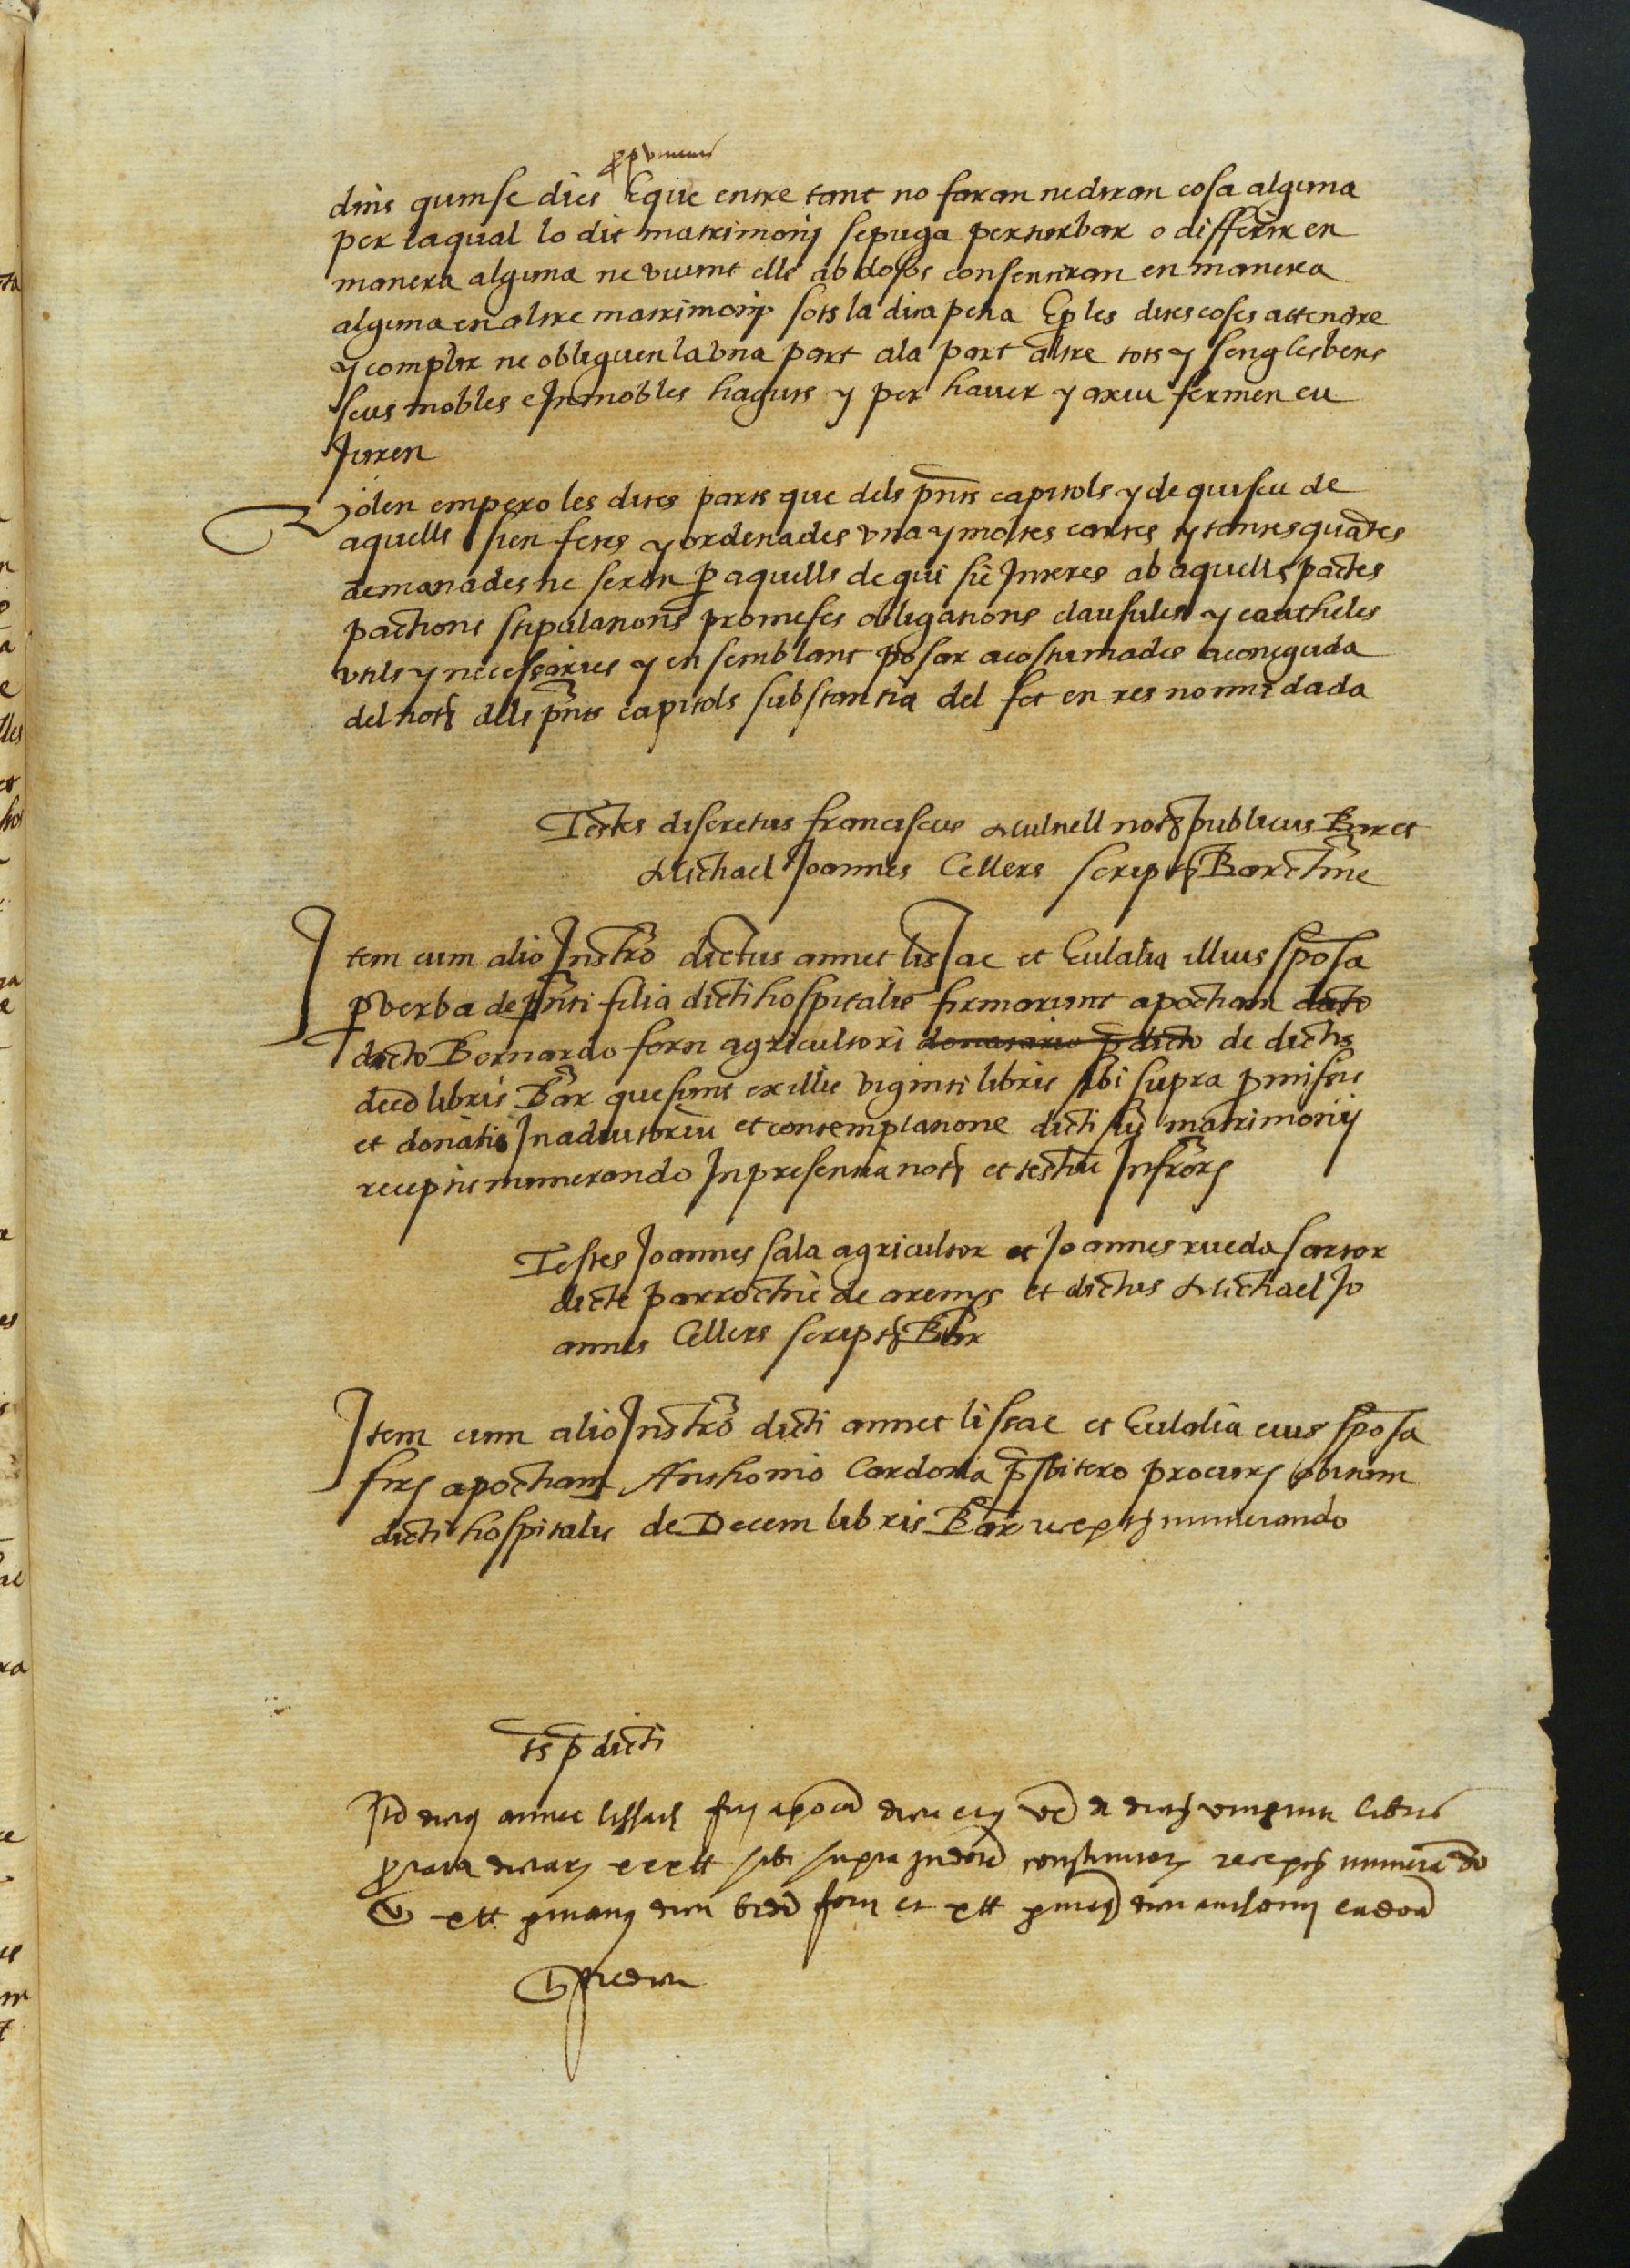 dins quinse dies Eque entre tant no faran nediran cosa alguna
per laqual lo dit matrimonj sepuga perturbar o differir en
manera alguna ne vivint ells ab dosos consentiran en manera
alguna en altre matrimonj sots la dita pena E p les dites coses attendre
y complir ne obliguen la vna part ala part altre tots y sengles bens
seus mobles e Inmobles haguts y per haver y axiu fermen eu
Juren
Volen empero les dites parts que dels pnts capitols y de quiscu de
aquells sien fetes y ordenades vna y moltes cartes y tantes quātes
demanades ne seran p aquells de qui sie Interes ab aquells pactes
pactions stipulations promeses obligations clausules y cauthelles
vtils y necessaries y en semblant posar acostumades aconeguda
del not dels pnts capitols substantia del fet en res no mudada
Testes discretus franciscus Mulnell not publicus Bar et
Michael Joannes Cellers script Barchne
Item cum alio Instro dictus annet lissac et Eulalia illius sposa
p verba de pnti filia dicti hospitalis firmarunt apocham dicto
dicto Bernardo forn agricultori donatario p dicto de dictis
decē libris Bar que sunt ex illis viginti libris sibi supra pmissis
et donatis In adiutoriū et contemplatione dicti sui matrimonij
receptis numerando In presentia not et testiū Infrors
Testes Joannes sala agricultor et Joannes rueda sartor
dicte parrochie de arenys et dictus Michael Jo
annes Cellers script Bar
Item cum alio Instro dicti annet lissac et Eulalia eius sposa
firs apocham Anthonio Cardona psbitero procurs
dicti hospitalis de Decem libris Bar recept numerando
ts p dicti
annet lissach apoca libris
sibi supra recept numerādo
forn et